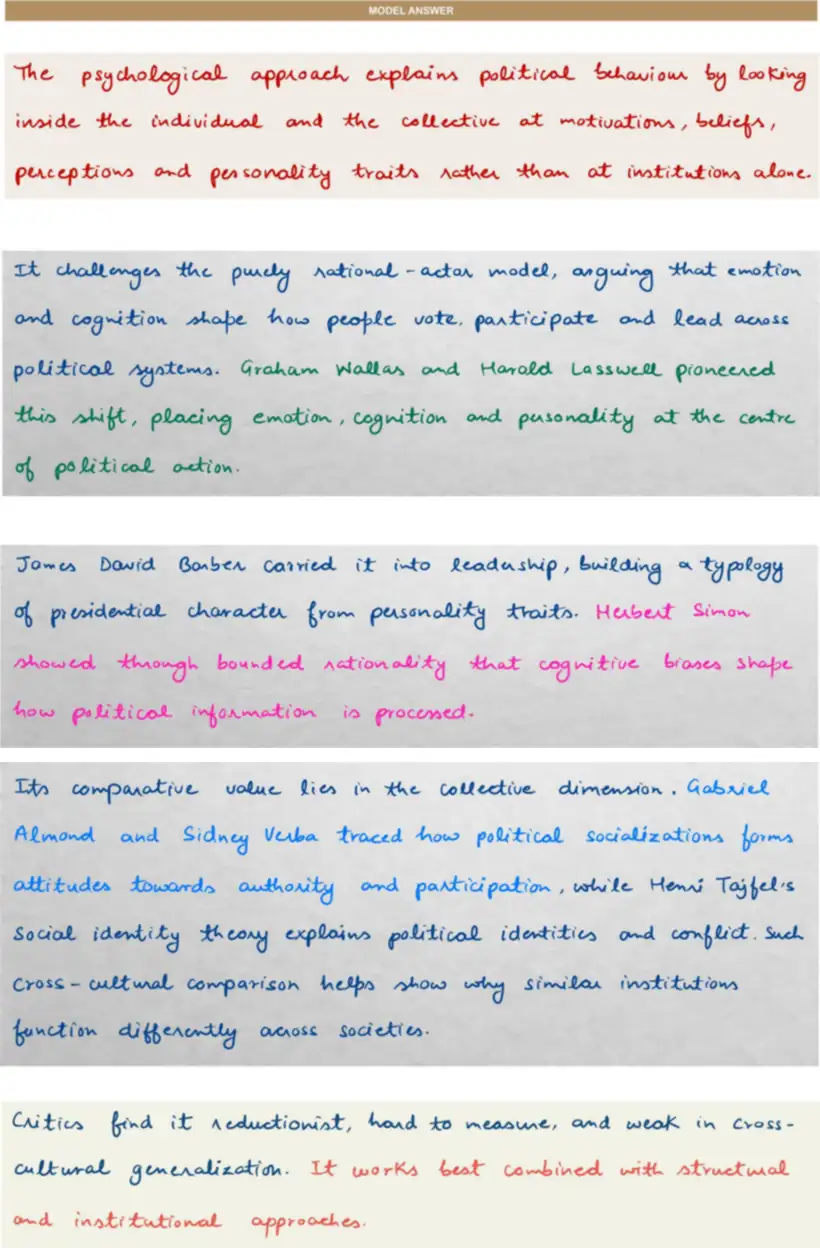 MODEL ANSWER
The psychological approach explains political behaviour by looking
inside the individual and the collective at motivations, beliefs,
perceptions and personality traits rather than at institutions alone.
It challenges the purely rational-actor model, arguing that emotion
and cognition shape how people vote, participate and lead across
political systems. Graham Wallas and Harold Lasswell pioneered
this shift, placing emotion, cognition and personality at the centre
of political action.
James David Barber carried it into leadership, building a typology
of presidential character from personality traits. Herbert Simon
showed through bounded rationality that cognitive biases shape
how political information is processed.
Its comparative value lies in the collective dimension. Gabriel
Almond and Sidney Verba traced how political socializations forms
attitudes towards authority and participation, while Henri Tajfel's
social identity theory explains political identities and conflict. Such
cross-cultural comparison helps show why similar institutions
function differently across societies.
Critics find it reductionist, hard to measure, and weak in cross-
cultural generalization. It works best combined with structural
and institutional approaches.